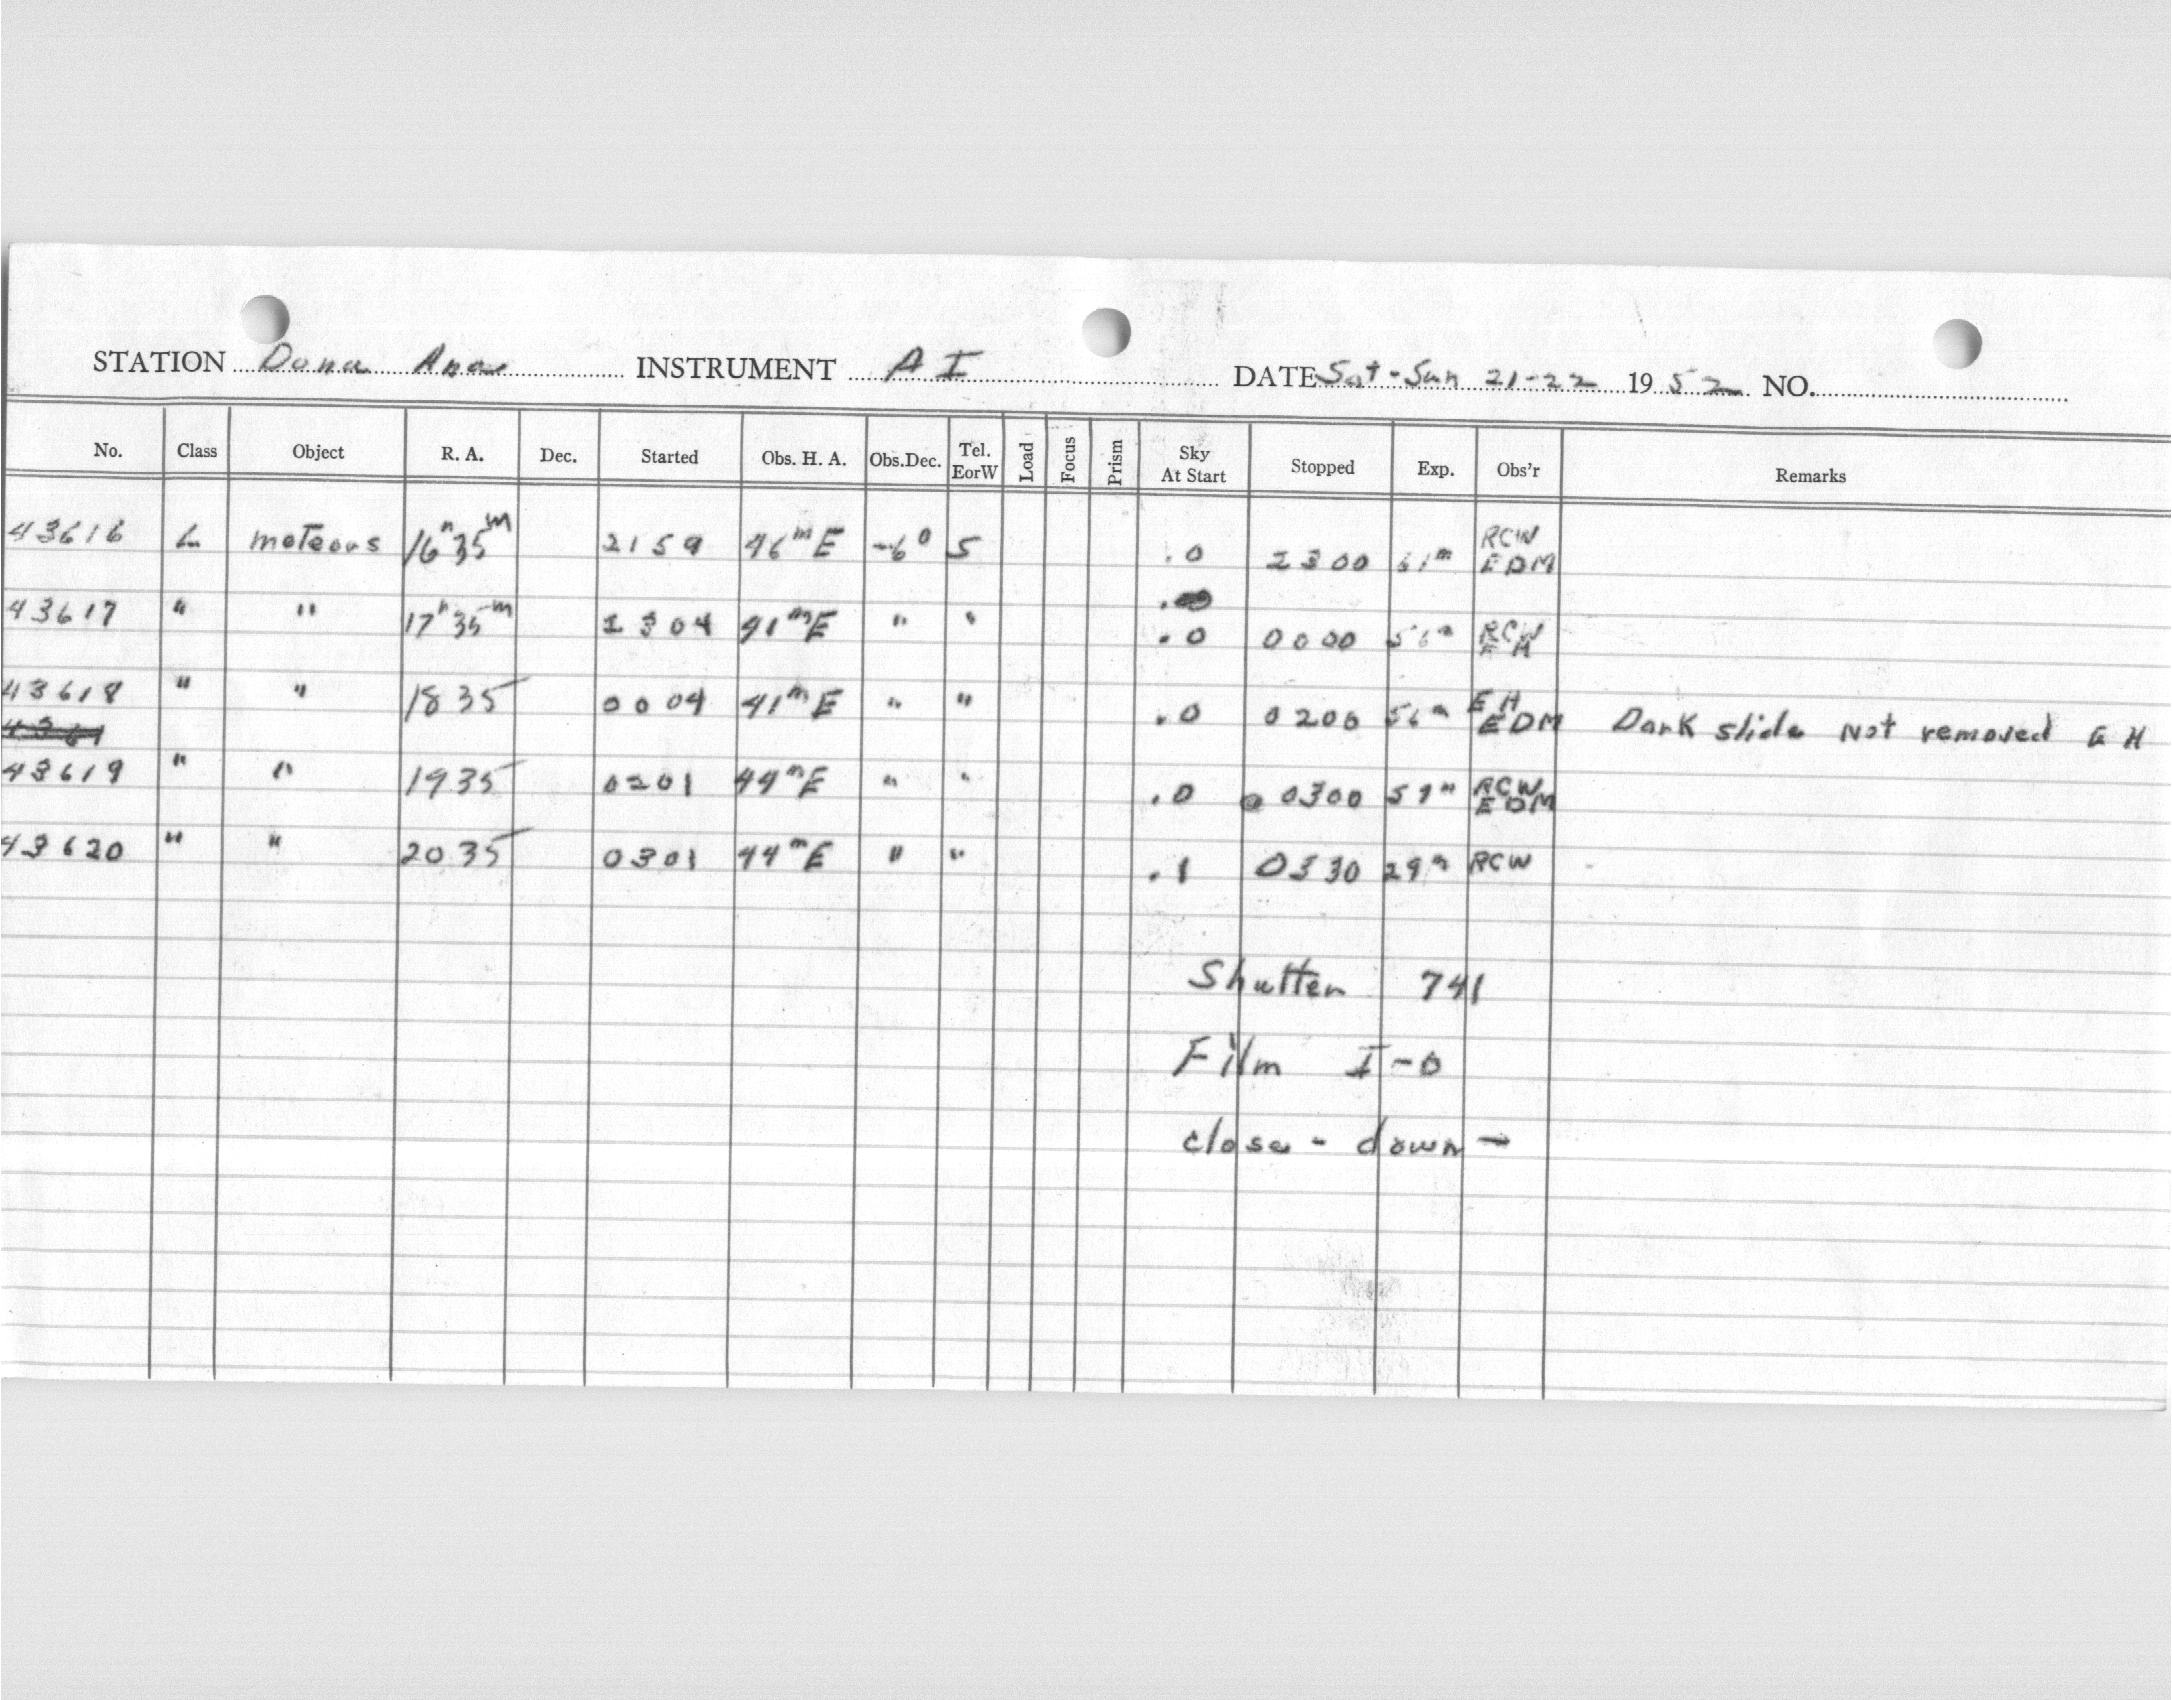 STATION Dona Ana INSTRUMENT A I DATE Sat-Sun 21-22 1952 NO.
No. Class Object R. A. Dec. Started Obs. H. A. Obs.Dec. Tel. EorW Load Focus Prism Sky At Start Stopped Exp. Obs'r Remarks
43616 L meteors 16h 35m 2159 46m E -6° S .0 2300 61m RCW EDM
43617 " " 17h 35m 2304 41m E " " .0 0000 56m RCW
43618 " " 18 35 0004 41m E " " .0 0200 56m EH EDM Dark slide not removed EH
43619 " " 19 35 0201 44m E " " .0 0300 59m RCW EDM
43620 " " 20 35 0301 44m E " " .1 0330 29m RCW
Shutter 741
Film I-0
close - down -